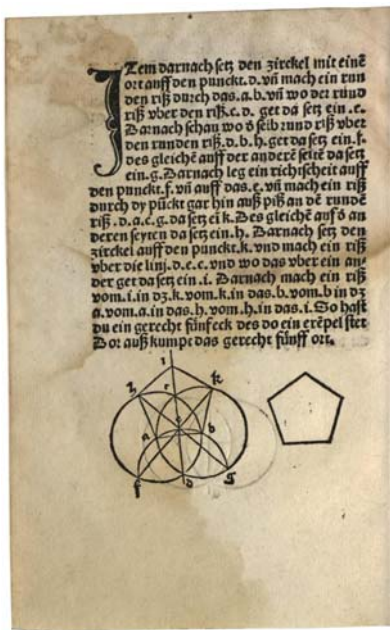 Jtem darnach setz den zirckel mit einē
ort auff den punckt.d.vñ mach ein run
den riß durch das.a.b.vñ wo der rund
riß vber den riß.c.d. get da setz ein .e.
Darnach schau wo d̄ selb rund riß vber
den runden riß.d.b.h.get da setz ein.f.
des gleichē auff der anderē seitē da setz
ein.g.Darnach leg ein richtscheit auff
den punckt.f.vñ auff das.e.vñ mach ein riß
durch dy pūckt gar hin auß piß an dē rundē
riß .d.a.c.g.da setz eī k.Des gleiche auf d̄ an
deren seyten da setz ein.h.Darnach setz den
zirckel auff den punckt.k.vnd mach ein riß
vber die linj.d.e.c.vnd wo das vber ein an
der get da setz ein.i.Darnach mach ein riß
vom.i.in dz.k.vom.k.in das.b.vom.b in dz
a.vom.a.in das.h.vom.h.in das.i.So hast
du ein gerecht fünfeck des do ein erēpel stet
Dor auß kumpt das gerecht fünff ort.
i
h c k
e
a b
f d g